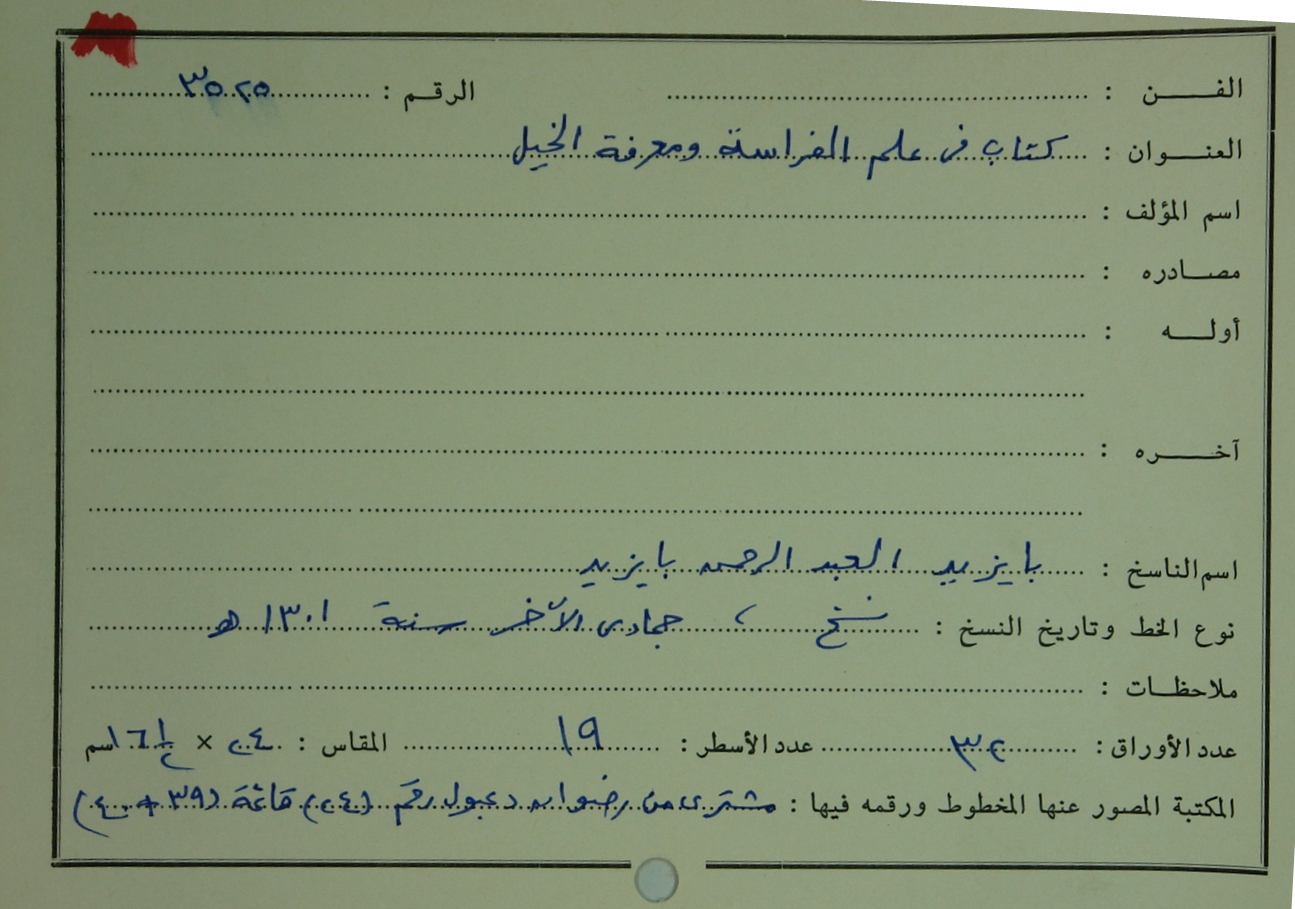 الفن : الرقم : ٣٥٢٥
العنوان : كتاب في علم الفراسة ومعرفة الخيل
اسم المؤلف :
مصادره :
أوله :
آخره :
اسم الناسخ : بايزيد العبد الرحمن بايزيد
نوع الخط وتاريخ النسخ : نسخ ، جمادى الآخر سنة ١٣٠١ هـ
ملاحظات :
عدد الأوراق : ٣٢ عدد الأسطر : ١٩ المقاس : ٢٤ × ١٦ ١/٢ سم
المكتبة المصور عنها المخطوط ورقمه فيها : مشترى من رضوان دعبول رقم (٢٤) قائمة (٣٩ + ٤٠)